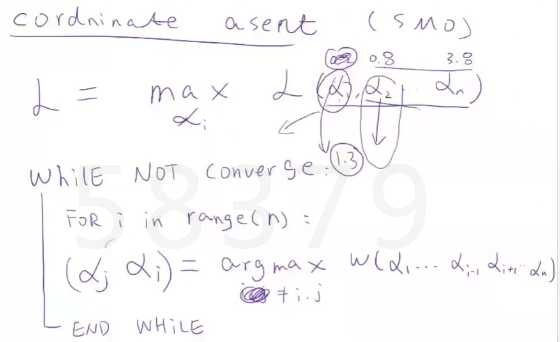 cordninate asent (SMO)
0.8 3.8
L = max L (α₁, α₂ . αₙ)
αᵢ
While NOT Converge: 1.3
FOR i in range(n) :
(αⱼ αᵢ) = argmax W(α₁ ... αᵢ₋₁ αᵢ₊₁ .. αₙ)
≠ i.j
END WHILE
58379